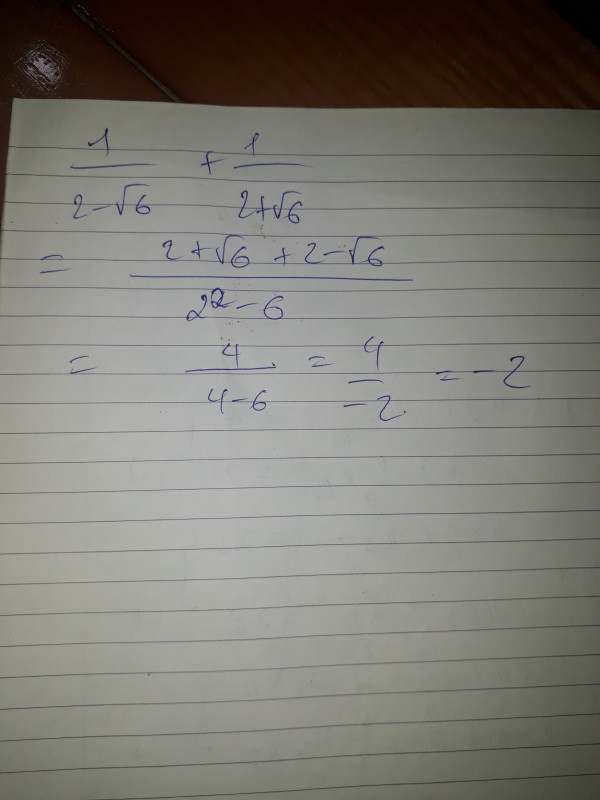 1/(2-√6) + 1/(2+√6)
= (2+√6 + 2-√6)/(2²-6)
= 4/(4-6) = 4/-2 = -2